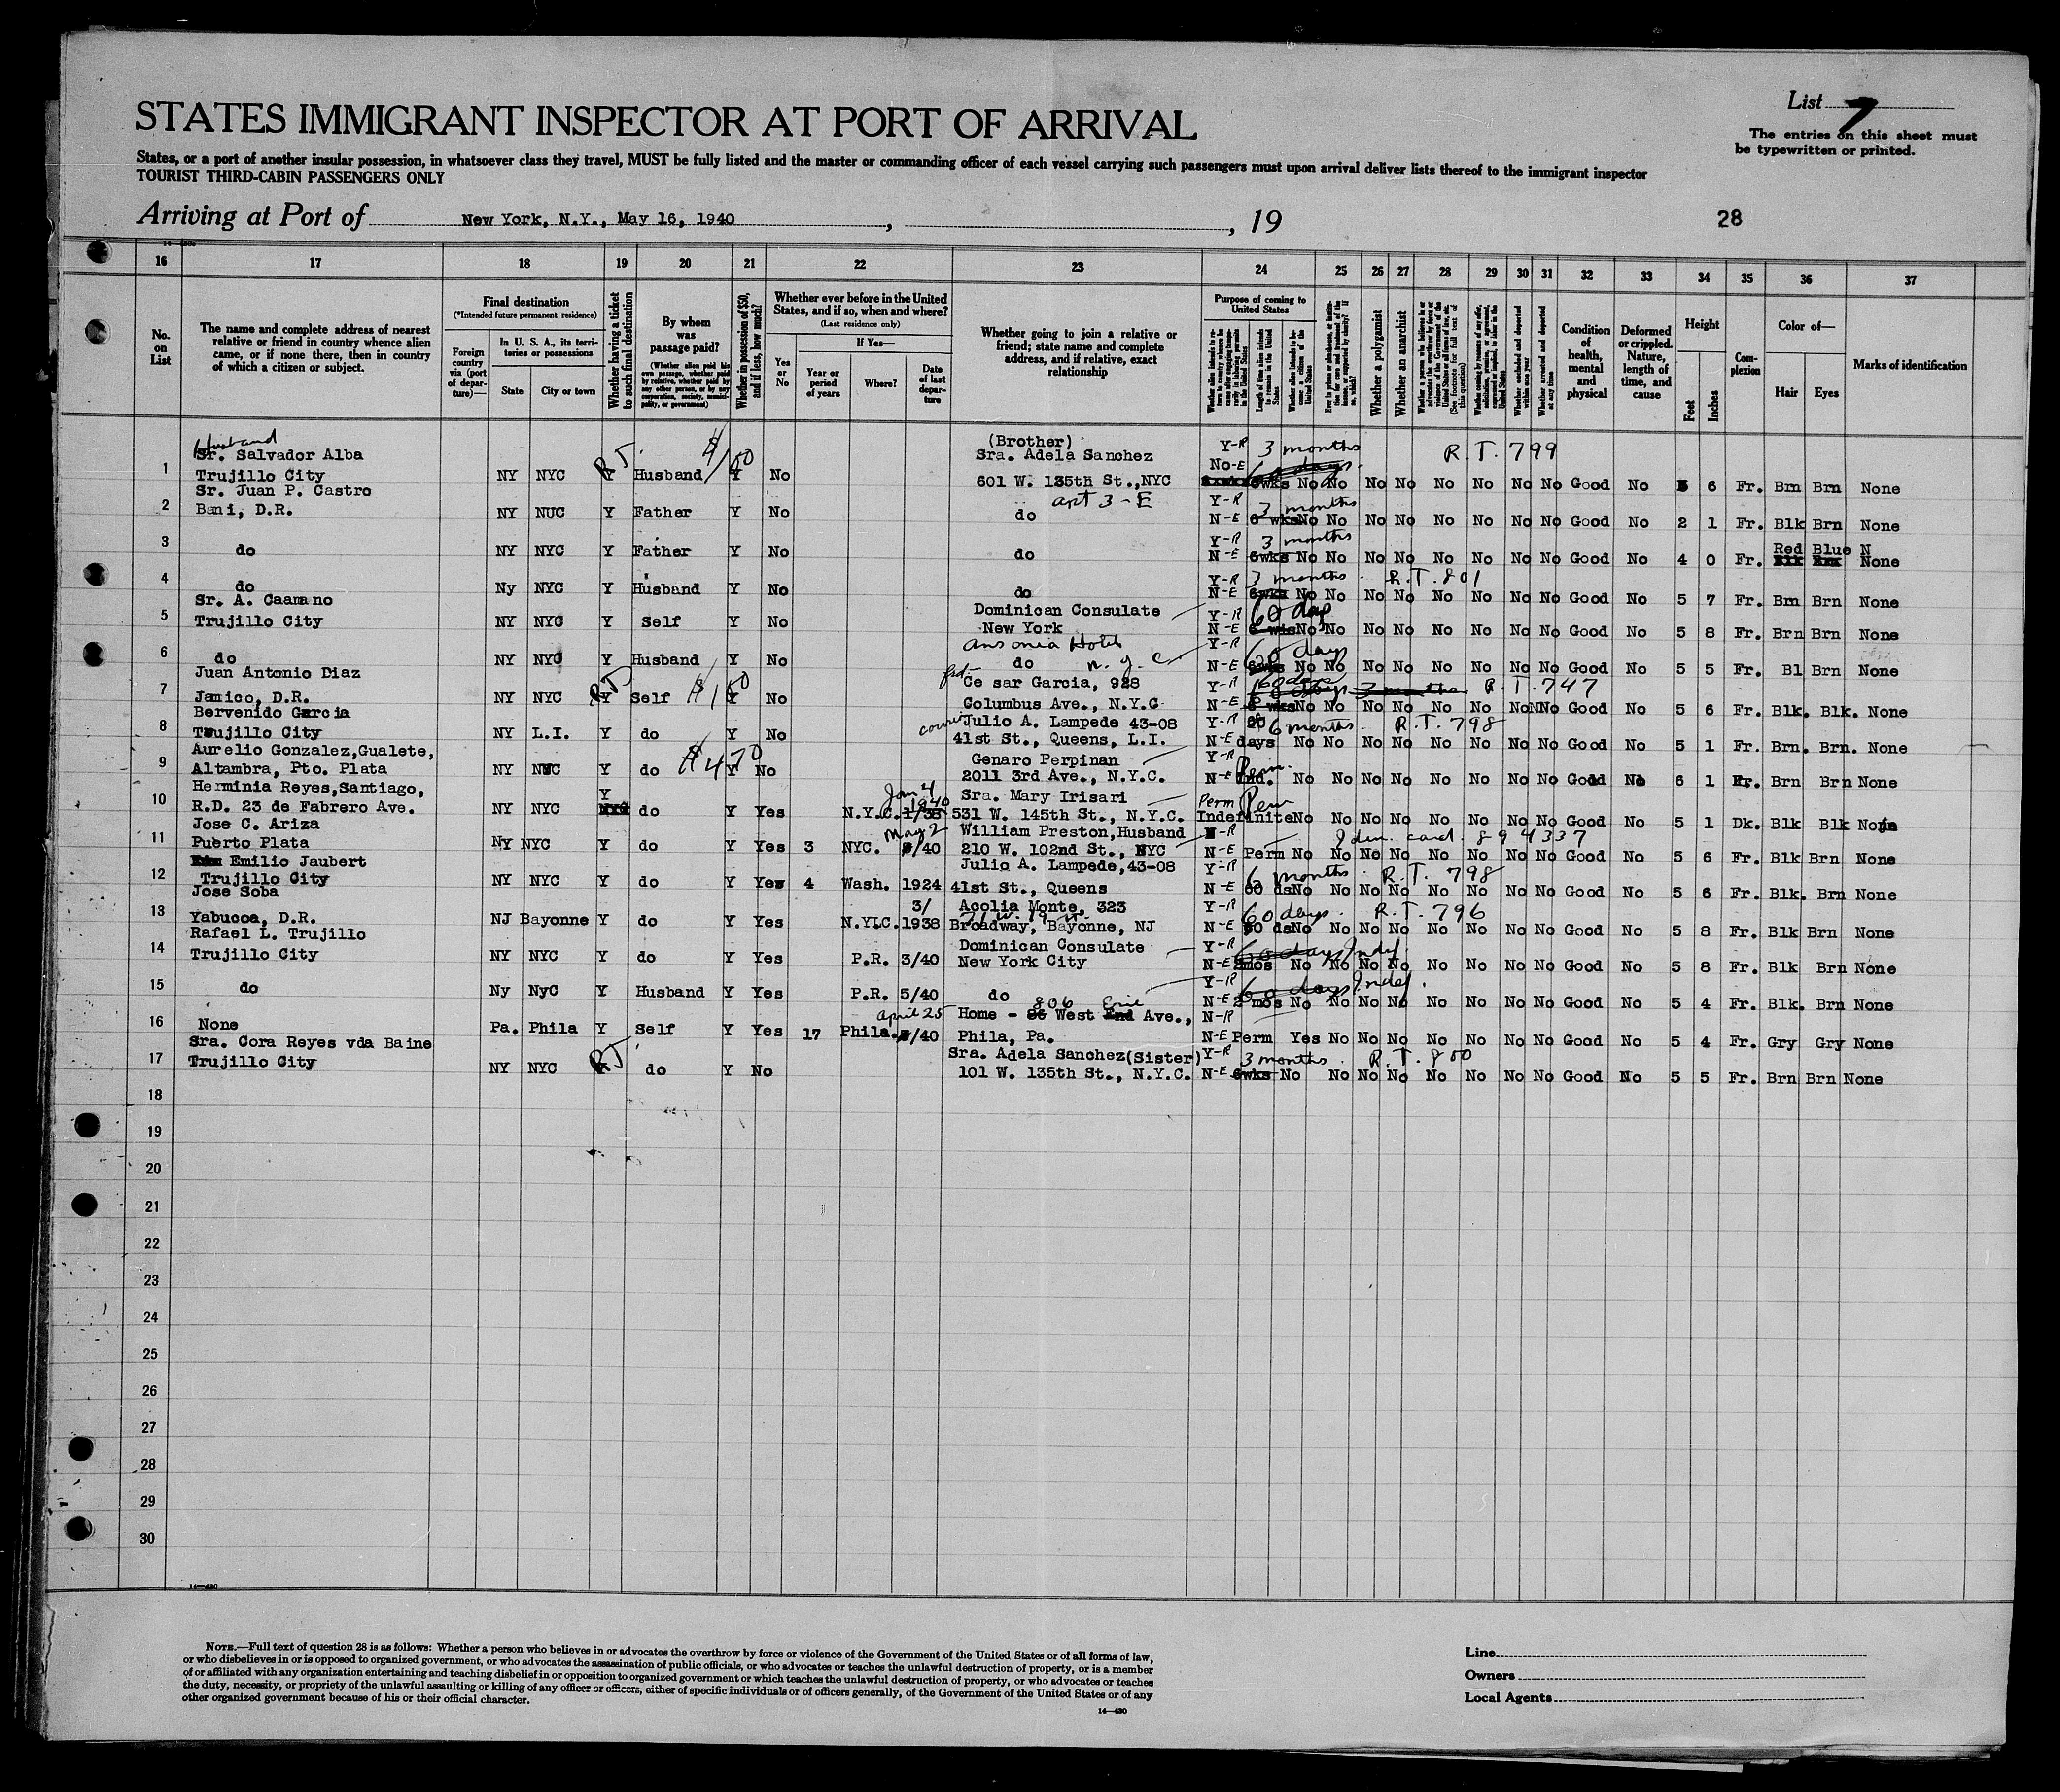 STATES IMMIGRANT INSPECTOR AT PORT OF ARRIVAL
List 7
The entries on this sheet must
be typewritten or printed.
States, or a port of another insular possession, in whatsoever class they travel, MUST be fully listed and the master or commanding officer of each vessel carrying such passengers must upon arrival deliver lists thereof to the immigrant inspector
TOURIST THIRD-CABIN PASSENGERS ONLY
Arriving at Port of New York, N.Y., May 16, 1940 , , 19
28
16 17 18 19 20 21 22 23 24 25 26 27 28 29 30 31 32 33 34 35 36 37
No. on List
The name and complete address of nearest
relative or friend in country whence alien
came, or if none there, then in country
of which a citizen or subject.
Final destination
(*Intended future permanent residence)
Foreign country via (port of departure)—
In U. S. A., its territories or possessions
State City or town
Whether having a ticket to such final destination
By whom was passage paid?
(Whether alien paid his own passage, whether paid by relative, whether paid by any other person, or by any corporation, society, municipality, or government)
Whether in possession of $50, and if less, how much?
Whether ever before in the United States, and if so, when and where?
(Last residence only)
Yes or No
If Yes—
Year or period of years
Where?
Date of last departure
Whether going to join a relative or
friend; state name and complete
address, and if relative, exact
relationship
Purpose of coming to United States
Length of time alien intends to remain in the United States
Whether a polygamist
Whether an anarchist
Whether arrested and deported at any time
Condition of health, mental and physical
Deformed or crippled. Nature, length of time, and cause
Height
Feet Inches
Complexion
Color of—
Hair Eyes
Marks of identification
Husband
Sr. Salvador Alba (Brother) Sra. Adela Sanchez Y-R 3 months R.T. 799
1 Trujillo City NY NYC R.T. Husband $100 Y No 601 W. 135th St.,NYC No-E 6wks No No No No No No No No Good No 5 6 Fr. Brn Brn None
apt 3-E
Sr. Juan P. Castro Y-R 3 months
2 Bani, D.R. NY NUC Y Father Y No do N-E 6 wks No No No No No No No No Good No 2 1 Fr. Blk Brn None
Y-R 3 months Red Blue N
3 do NY NYC Y Father Y No do N-E 6wks No No No No No No No No Good No 4 0 Fr. Blk Brn None
Y-R 3 months R.T. 801
4 do Ny NYC Y Husband Y No do N-E 6wks No No No No No No No No Good No 5 7 Fr. Brn Brn None
Sr. A. Caamano Dominican Consulate Y-R 60 days
5 Trujillo City NY NYC Y Self Y No New York N-E 6 wks No No No No No No No No Good No 5 8 Fr. Brn Brn None
Ansonia Hotel Y-R 60 days
6 do NY NYC Y Husband Y No do N.Y.C N-E 6wks No No No No No No No No Good No 5 5 Fr. Bl Brn None
Juan Antonio Diaz Ce sar Garcia, 928 Y-R 60 days 3 months R.T. 747
7 Jamico, D.R. NY NYC R.T. Y Self $150 Y No Columbus Ave., N.Y.C N-E 6 wks No No No No No No No No Good No 5 6 Fr. Blk. Blk. None
Bervenido Garcia Julio A. Lampede 43-08 Y-R 6 months R.T. 798
8 Trujillo City NY L.I. Y do Y No 41st St., Queens, L.I. N-E days No No No No No No No No Good No 5 1 Fr. Brn. Brn. None
Aurelio Gonzalez,Gualete, Genaro Perpinan Y-R
9 Altambra, Pto. Plata NY NUC Y do $470 Y No 2011 3rd Ave., N.Y.C. N-E Ind. Perm. No No No No No No No No Good No 6 1 Fr. Brn Brn None
Herminia Reyes,Santiago, Y Jan 4 1940 Sra. Mary Irisari Perm Perm
10 R.D. 23 de Fabrero Ave. NY NYC do Y Yes N.Y.C. 1/38 531 W. 145th St., N.Y.C. Indefinite No No No No No No No No Good No 5 1 Dk. Blk Blk None
Jose C. Ariza May 2 William Preston,Husband N-R Iden. card. 894337
11 Puerto Plata NY NYC Y do Y Yes 3 NYC. /40 210 W. 102nd St., NYC N-E Perm No No No No No No No No Good No 5 6 Fr. Blk Brn None
Emilio Jaubert Julio A. Lampede,43-08 Y-R 6 months R.T. 798
12 Trujillo City NY NYC Y do Y Yes 4 Wash. 1924 41st St., Queens N-E 60 ds No No No No No No No No Good No 5 6 Fr. Blk. Brn None
Jose Soba 3/ Acolia Monte, 323 Y-R 60 days R.T. 796
13 Yabucoa, D.R. NJ Bayonne Y do Y Yes N.Y.C. 1938 Broadway, Bayonne, NJ N-E 60 ds No No No No No No No No Good No 5 8 Fr. Blk Brn None
Rafael L. Trujillo Dominican Consulate Y-R 60 days Indef.
14 Trujillo City NY NYC Y do Y Yes P.R. 3/40 New York City N-E 2mos No No No No No No No No Good No 5 8 Fr. Blk Brn None
Y-R 60 days Indef.
15 do Ny NyC Y Husband Y Yes P.R. 5/40 do N-E 2 mos No No No No No No No No Good No 5 4 Fr. Blk. Brn None
April 25 Home - 86 806 West End Erie Ave., N-R
16 None Pa. Phila Y Self Y Yes 17 Phila. /40 Phila, Pa. N-E Perm Yes No No No No No No No Good No 5 4 Fr. Gry Gry None
Sra. Cora Reyes vda Baine Sra. Adela Sanchez(Sister) Y-R 3 months R.T. 800
17 Trujillo City NY NYC R.T. do Y No 101 W. 135th St., N.Y.C. N-E 6wks No No No No No No No No Good No 5 5 Fr. Brn Brn None
18
19
20
21
22
23
24
25
26
27
28
29
30
14—430
NOTE.—Full text of question 28 is as follows: Whether a person who believes in or advocates the overthrow by force or violence of the Government of the United States or of all forms of law,
or who disbelieves in or is opposed to organized government, or who advocates the assassination of public officials, or who advocates or teaches the unlawful destruction of property, or is a member
of or affiliated with any organization entertaining and teaching disbelief in or opposition to organized government or which teaches the unlawful destruction of property, or who advocates or teaches
the duty, necessity, or propriety of the unlawful assaulting or killing of any officer or officers, either of specific individuals or of officers generally, of the Government of the United States or of any
other organized government because of his or their official character.
14—430
Line
Owners
Local Agents